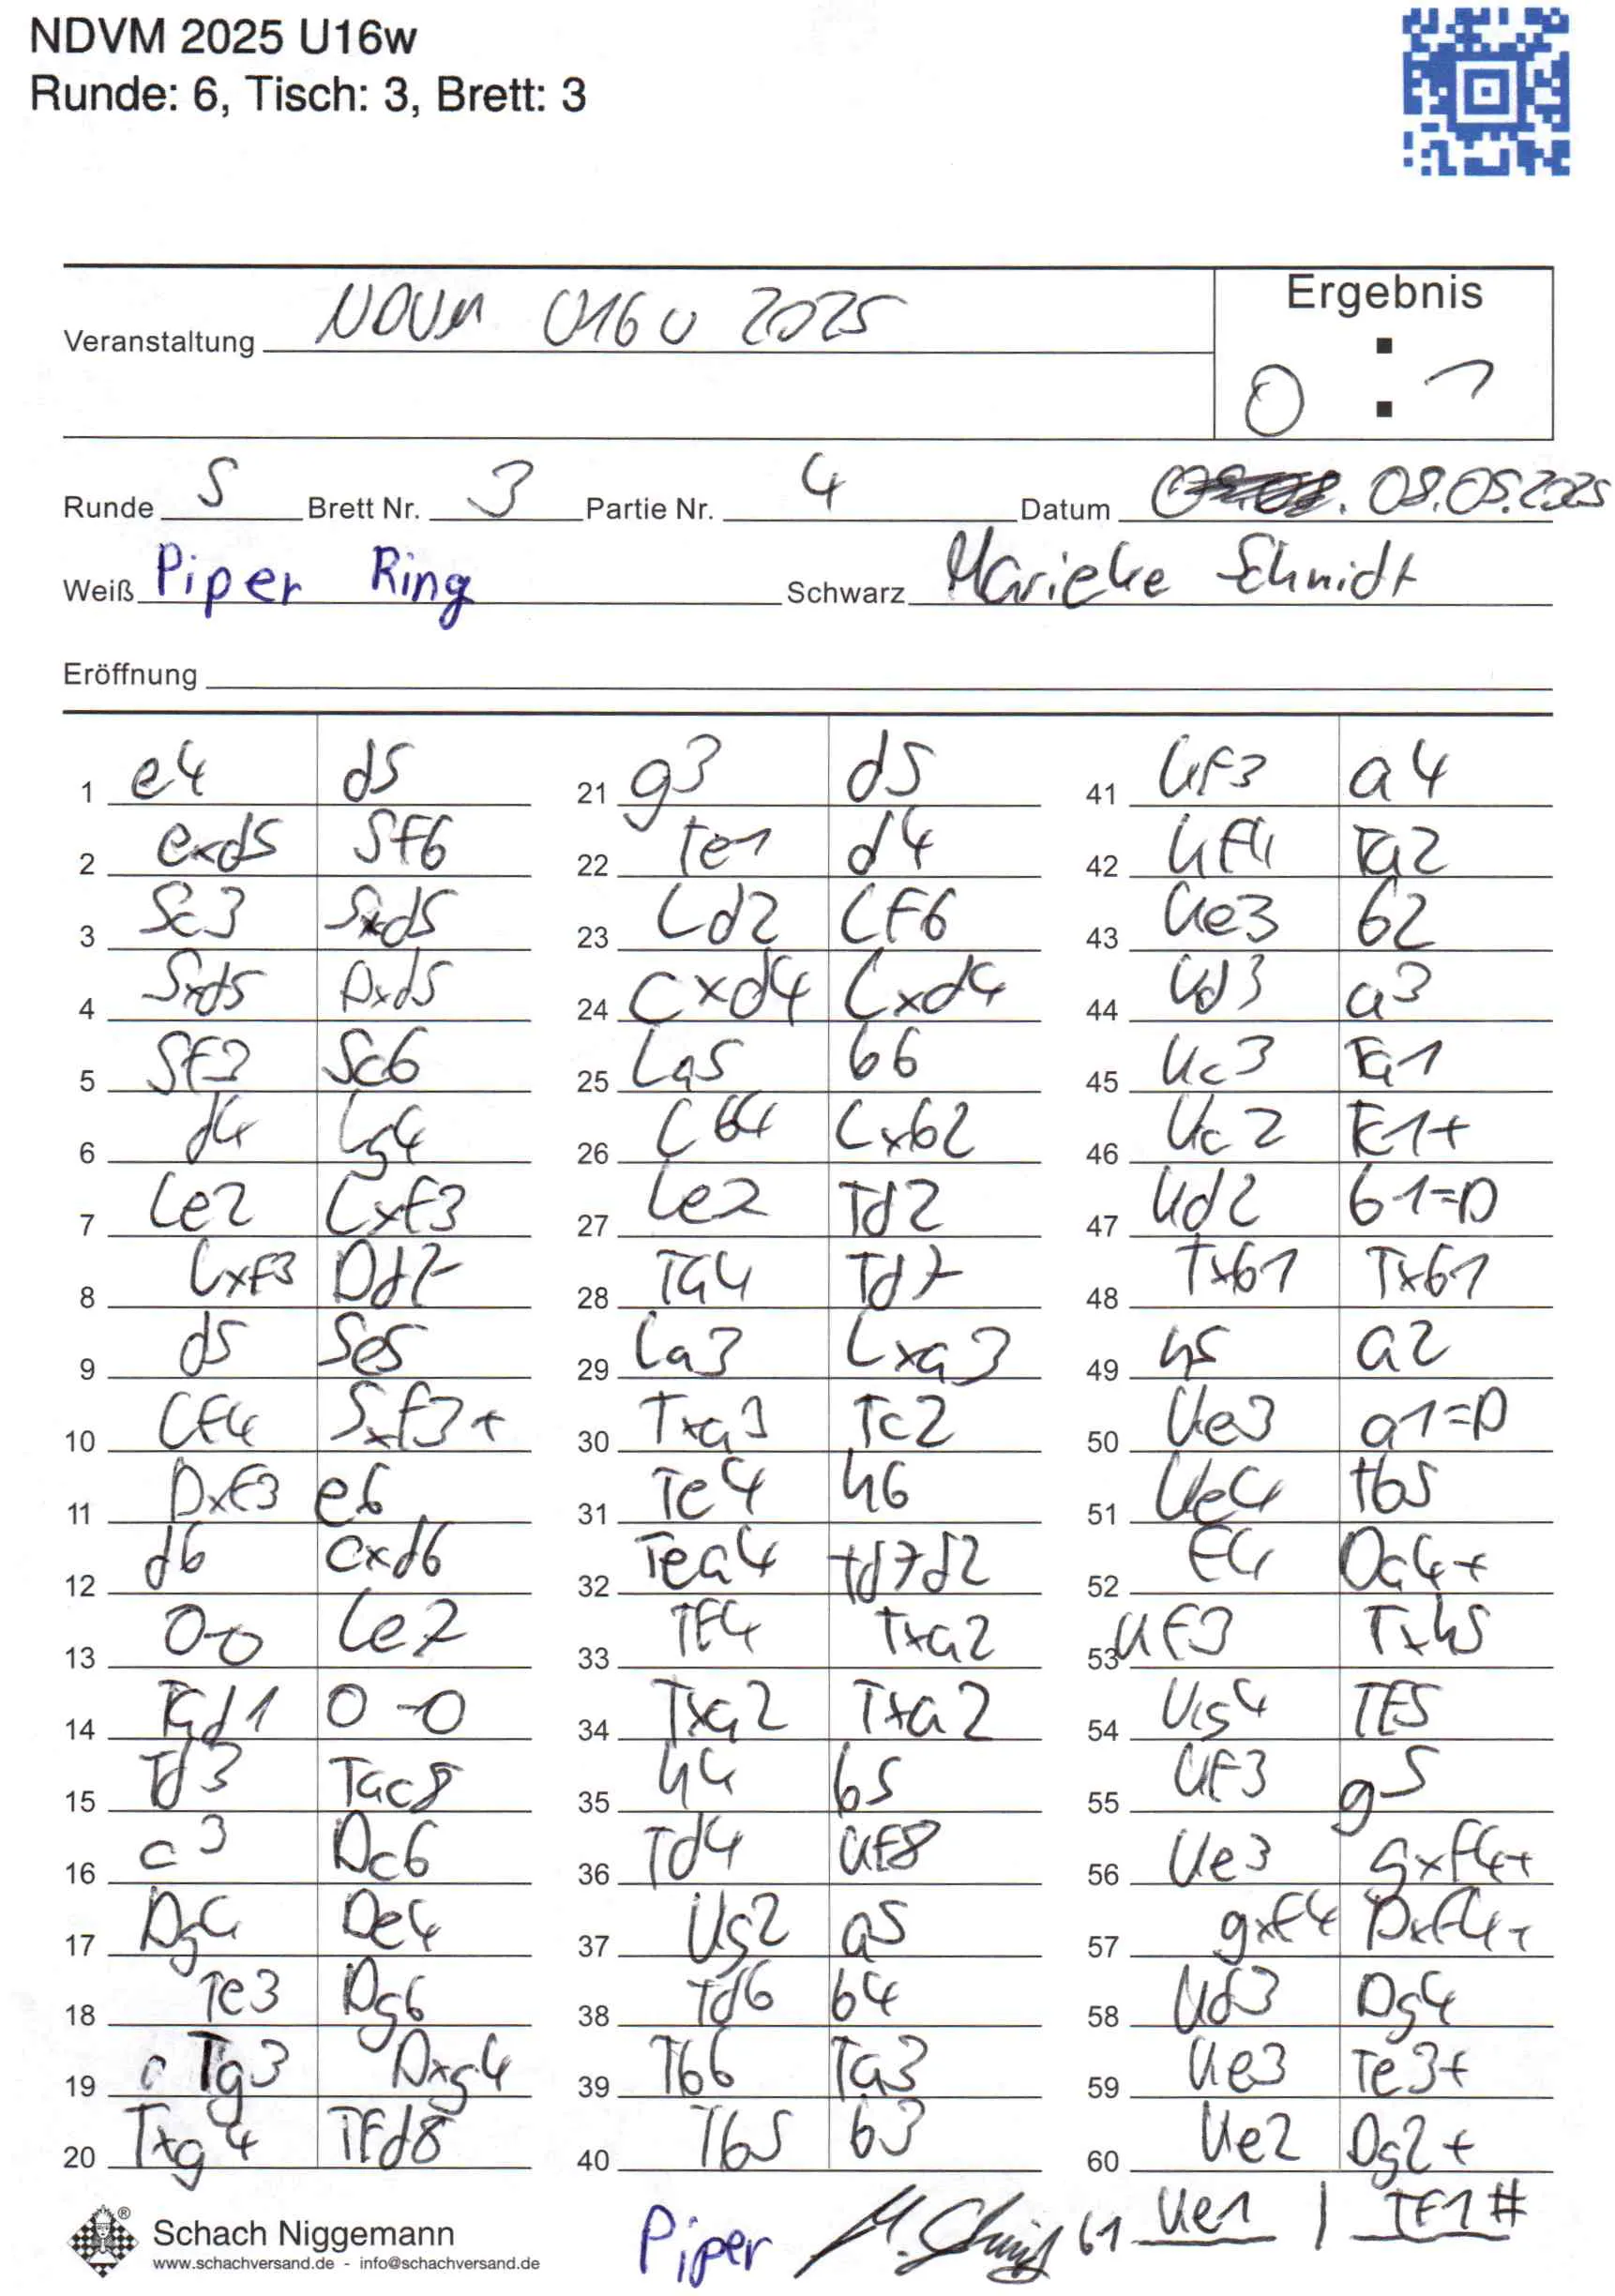 NDVM 2025 U16w
Runde: 6, Tisch: 3, Brett: 3
Ergebnis
Veranstaltung NDVM U16w 2025
0 : 1
Runde 5 Brett Nr. 3 Partie Nr. 4 Datum 08.05.2025
Weiß Piper Ring Schwarz Marieke Schmidt
Eröffnung
1 e4 d5 21 g3 d5 41 Kf3 a4
2 exd5 Sf6 22 Te1 d4 42 Kf4 Ta2
3 Sc3 Sxd5 23 Ld2 Lf6 43 Ke3 b2
4 Sxd5 Dxd5 24 cxd4 Lxd4 44 Kd3 a3
5 Sf3 Sc6 25 La5 b6 45 Kc3 Ta1
6 d4 Lg4 26 Lb4 Lxb2 46 Kc2 Tc1+
7 Le2 Lxf3 27 Le2 Td2 47 Kd2 b1=D
8 Lxf3 Dd7 28 Ta4 Td7 48 Txb1 Txb1
9 d5 Se5 29 La3 Lxa3 49 h5 a2
10 Lf4 Sxf3+ 30 Txa3 Tc2 50 Ke3 a1=D
11 Dxf3 e6 31 Te4 h6 51 Ke4 Tb5
12 d6 cxd6 32 Tea4 Td7d2 52 f4 Da4+
13 0-0 Le7 33 Tf4 Txa2 53 Kf3 Txh5
14 Tad1 0-0 34 Txa2 Txa2 54 Kg4 Tf5
15 Td3 Tac8 35 h4 b5 55 Kf3 g5
16 c3 Dc6 36 Td4 Kf8 56 Ke3 gxf4+
17 Dg4 De4 37 Kg2 a5 57 gxf4 Dxf4+
18 Te3 Dg6 38 Td6 b4 58 Kd3 Dg4
19 Tg3 Dxg4 39 Tb6 Ta3 59 Ke3 Te3+
20 Txg4 Tfd8 40 Tb5 b3 60 Ke2 Dg2+
61 Ke1 | Tf1#
Schach Niggemann
www.schachversand.de - info@schachversand.de
Piper